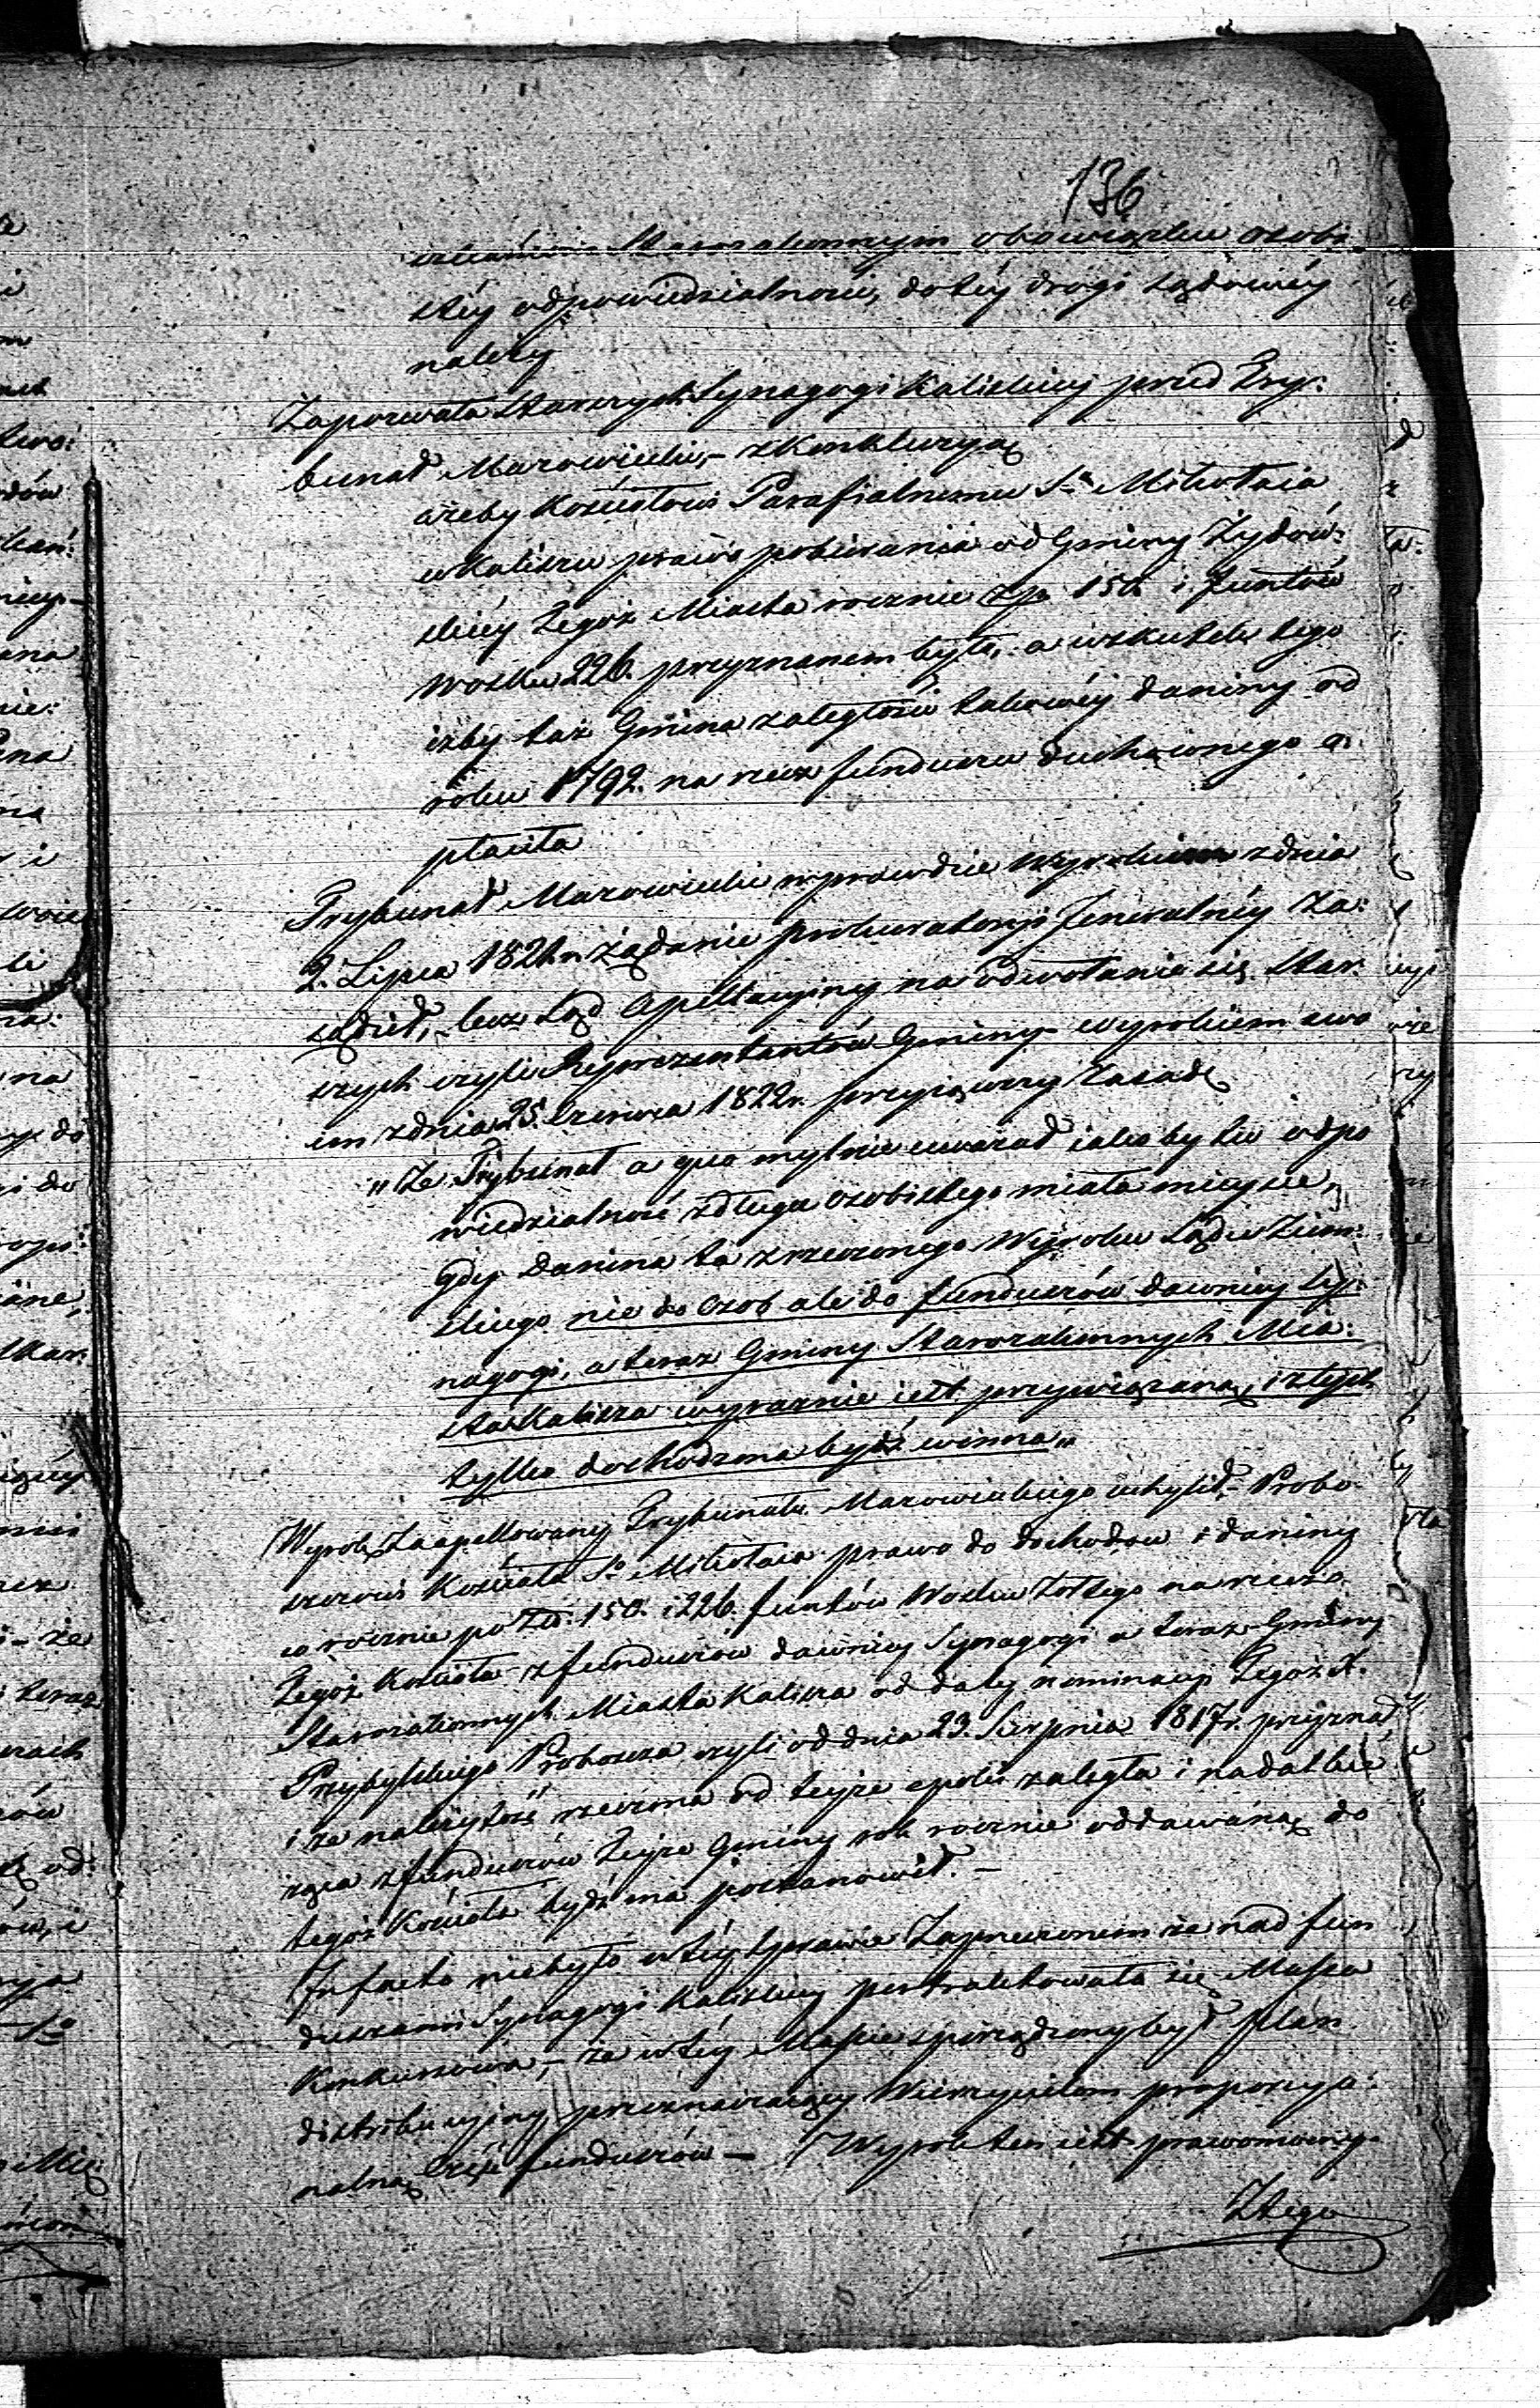 136
Starozakonnym obowiązku osobi-
stéy odpowiedzialności, do téy drogi sądowéy
należy
Zapozwała Starszych Synagogi Kaliskiey przed Try:
bunał Mazowiecki, – z konkluzyą
ażeby Kościołowi Parafialnemu Sgo Mikołaia
w Kaliszu prawo pobierania od Gminy Żydow:
skiéy tegoż Miasta rocznie Złp. 150. i funtów
wosku 226. przyznanem było, a wskutek tego
iżby taż Gmina zaległości takowéy daniny od
roku 1792. na rzecz funduszu duchownego o:
płaciła
Trybunał Mazowiecki wprawdzie Wyrokiem z dnia
2. Lipca 1821 r. żądanie prokuratoryi Jeneralnéy za:
sądził, – lecz Sąd Apellacyiny na odwołanie się Star:
szych czyli Reprezentantów Gminy wyrokiem swo
im z dnia 25. Czerwca 1822 r. przyiąwszy zasadę
„że Trybunał a quo mylnie uważał iakoby tu odpo
wiedzialność z długu osobistego miała mieysce,
gdy danina ta z rzeczonego Wyroku Sądu Ziem:
skiego nie do Osob ale do funduszów dawniey Sy:
nagogi, a teraz Gminy Starozakonnych Mia:
sta Kalisza wyraznie iest przywiązaną, i z tych
tylko dochodzona bydź winna„
Wyrok zaapellowany Trybunału Mazowieckiego uchylił, – Probo
szczowi Kościoła Sgo Mikołaia prawo do dochodzu i daniny
co rocznie po Złp. 150. i 226. funtów Wosku żołtego na rzecz
tegoż Kościoła – z funduszów dawniey Synagogi a teraz Gminy
Starozakonnych Miasta Kalisza od daty nominacyi tegoż X.
Przybylskiego Proboszcza czyli od dnia 23. Sierpnia 1817 r. przyznał
i że należytość rzeczona od teyże epoki zaległa i nadal bie
żąca z funduszów teyże Gminy rok rocznie oddawaną do
tegoż Kościoła bydź ma postanowił. –
In facto niebyło w téy sprawie zaprzeczonem że nad fun
duszami Synagogi Kaliskiey pertraktowała się Massa
Konkursowa, – że w téy Massie sporządzony był plan
distribucyiny przeznaczaiący Wierzycielom proporcyo:
nalną część funduszów – Wyrok ten iest prawomocny.
Z tego